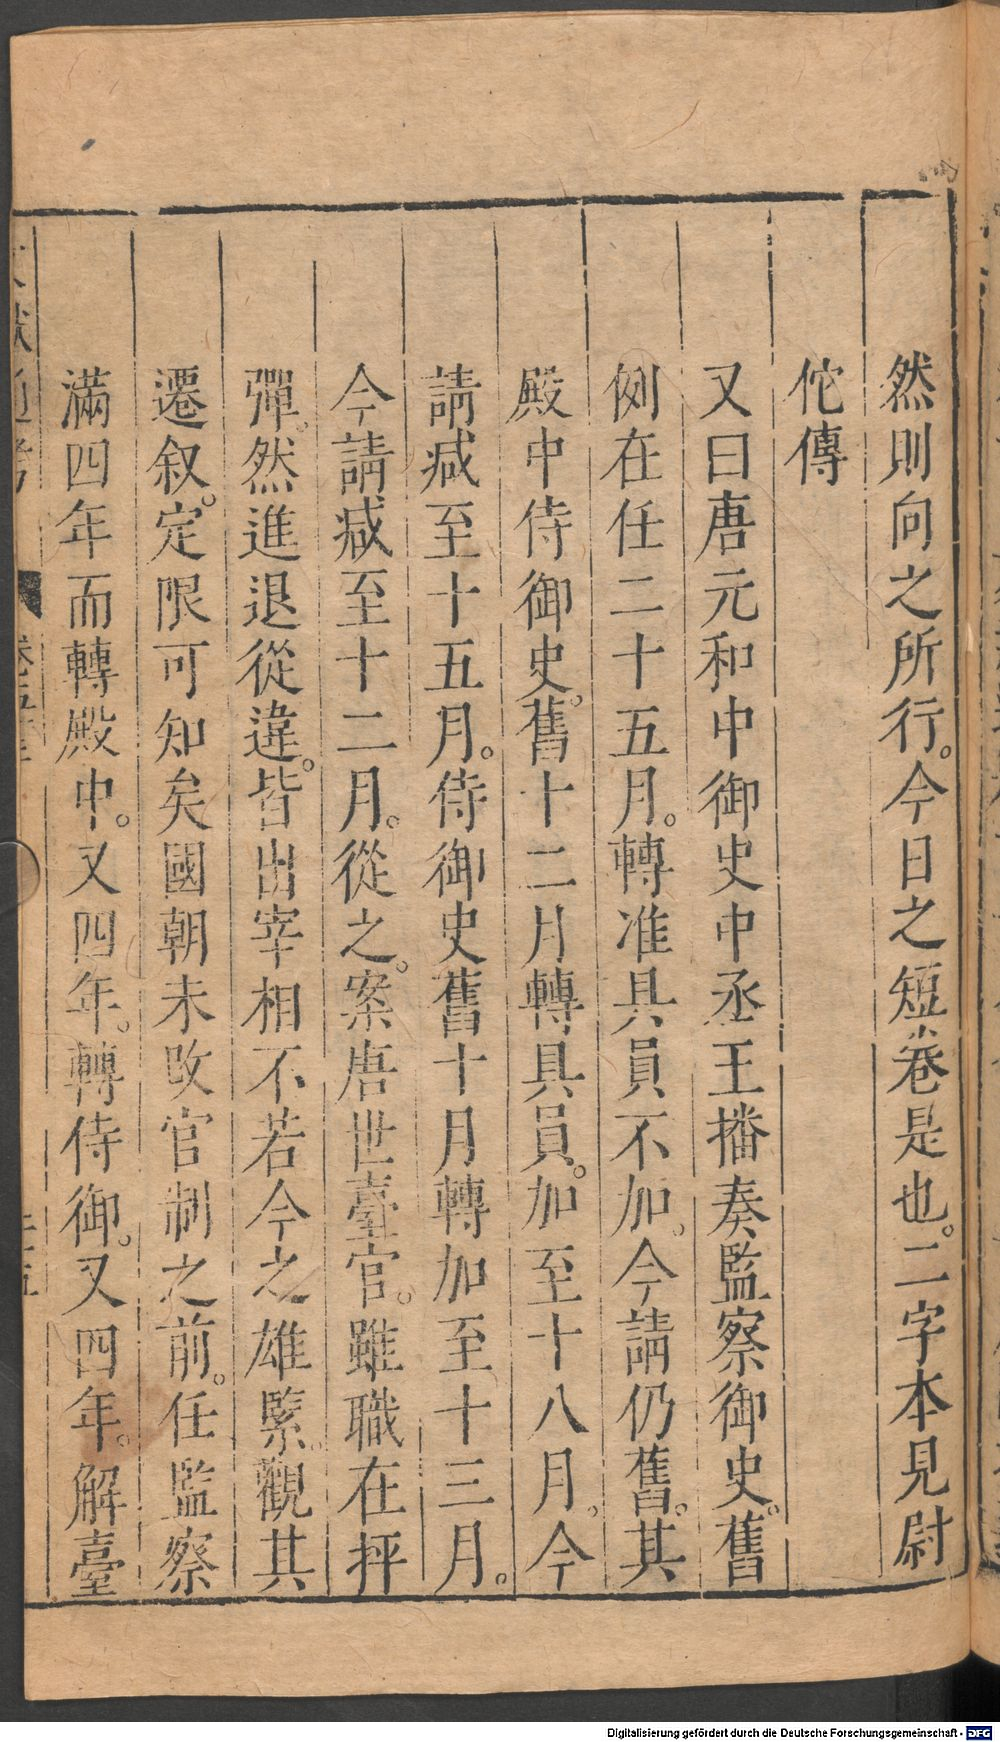 然則向之所行。今日之短卷是也。二字本見尉
佗傳
又曰唐元和中御史中丞王播奏監察御史。舊
例在任二十五月。轉准具員不加。今請仍舊。其
殿中侍御史。舊十二月轉具員。加至十八月。今
請减至十五月。侍御史舊十月轉加至十三月。
今請减至十二月。從之。案唐世臺官。雖職在抨
彈。然進退從違。皆出宰相不若今之雄緊。觀其
遷叙。定限可知矣國朝未改官制之前。任監察
滿四年而轉殿中。又四年。轉侍御。又四年。解臺
Digitalisierung gefördert durch die Deutsche Forschungsgemeinschaft - DFG